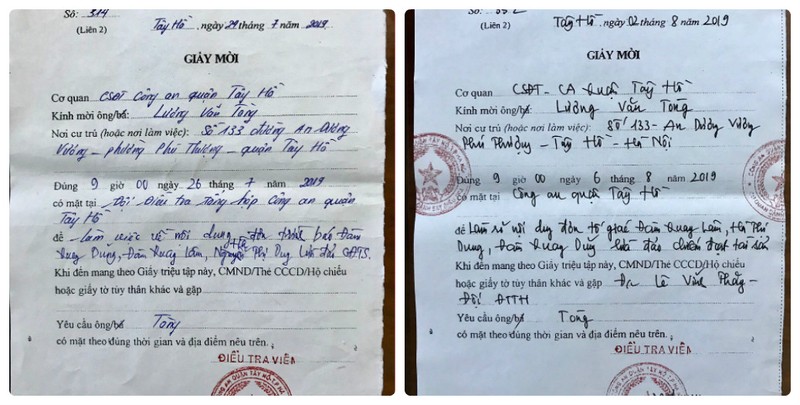 Số: 314
(Liên 2)
Tây Hồ, ngày 24 tháng 7 năm 2019
GIẤY MỜI
Cơ quan CSĐT Công an quận Tây Hồ
Kính mời ông/bà: Lương Văn Tòng
Nơi cư trú (hoặc nơi làm việc): Số 133 đường An Dương
Vương - phường Phú Thượng - quận Tây Hồ
Đúng 9 giờ 00 ngày 26 tháng 7 năm 2019
có mặt tại Đội Điều tra tổng hợp Công an quận
Tây Hồ
để làm việc về nội dung đơn trình báo Đàm
Quang Dũng, Đàm Quang Lâm, Nguyễn Thị Dung lừa đảo CĐTS.
Khi đến mang theo Giấy triệu tập này, CMND/Thẻ CCCD/Hộ chiếu
hoặc giấy tờ tùy thân khác và gặp
Yêu cầu ông/bà Tòng
có mặt theo đúng thời gian và địa điểm nêu trên.
ĐIỀU TRA VIÊN
Số:
(Liên 2)
Tây Hồ, ngày 02 tháng 8 năm 2019
GIẤY MỜI
Cơ quan CSĐT - CA quận Tây Hồ
Kính mời ông/bà: Lương Văn Tòng
Nơi cư trú (hoặc nơi làm việc): Số 133 - An Dương Vương
Phú Thượng - Tây Hồ - Hà Nội
Đúng 9 giờ 00 ngày 6 tháng 8 năm 2019
có mặt tại Công an quận Tây Hồ
để Làm rõ nội dung đơn tố giác Đàm Quang Lâm, Thị
Dung, Đàm Quang Dũng lừa đảo chiếm đoạt tài sản
Khi đến mang theo Giấy triệu tập này, CMND/Thẻ CCCD/Hộ chiếu
hoặc giấy tờ tùy thân khác và gặp Đ/c Lê Văn Thắng -
Đội ĐTTH
Yêu cầu ông/bà Tòng
có mặt theo đúng thời gian và địa điểm nêu trên.
ĐIỀU TRA VIÊN